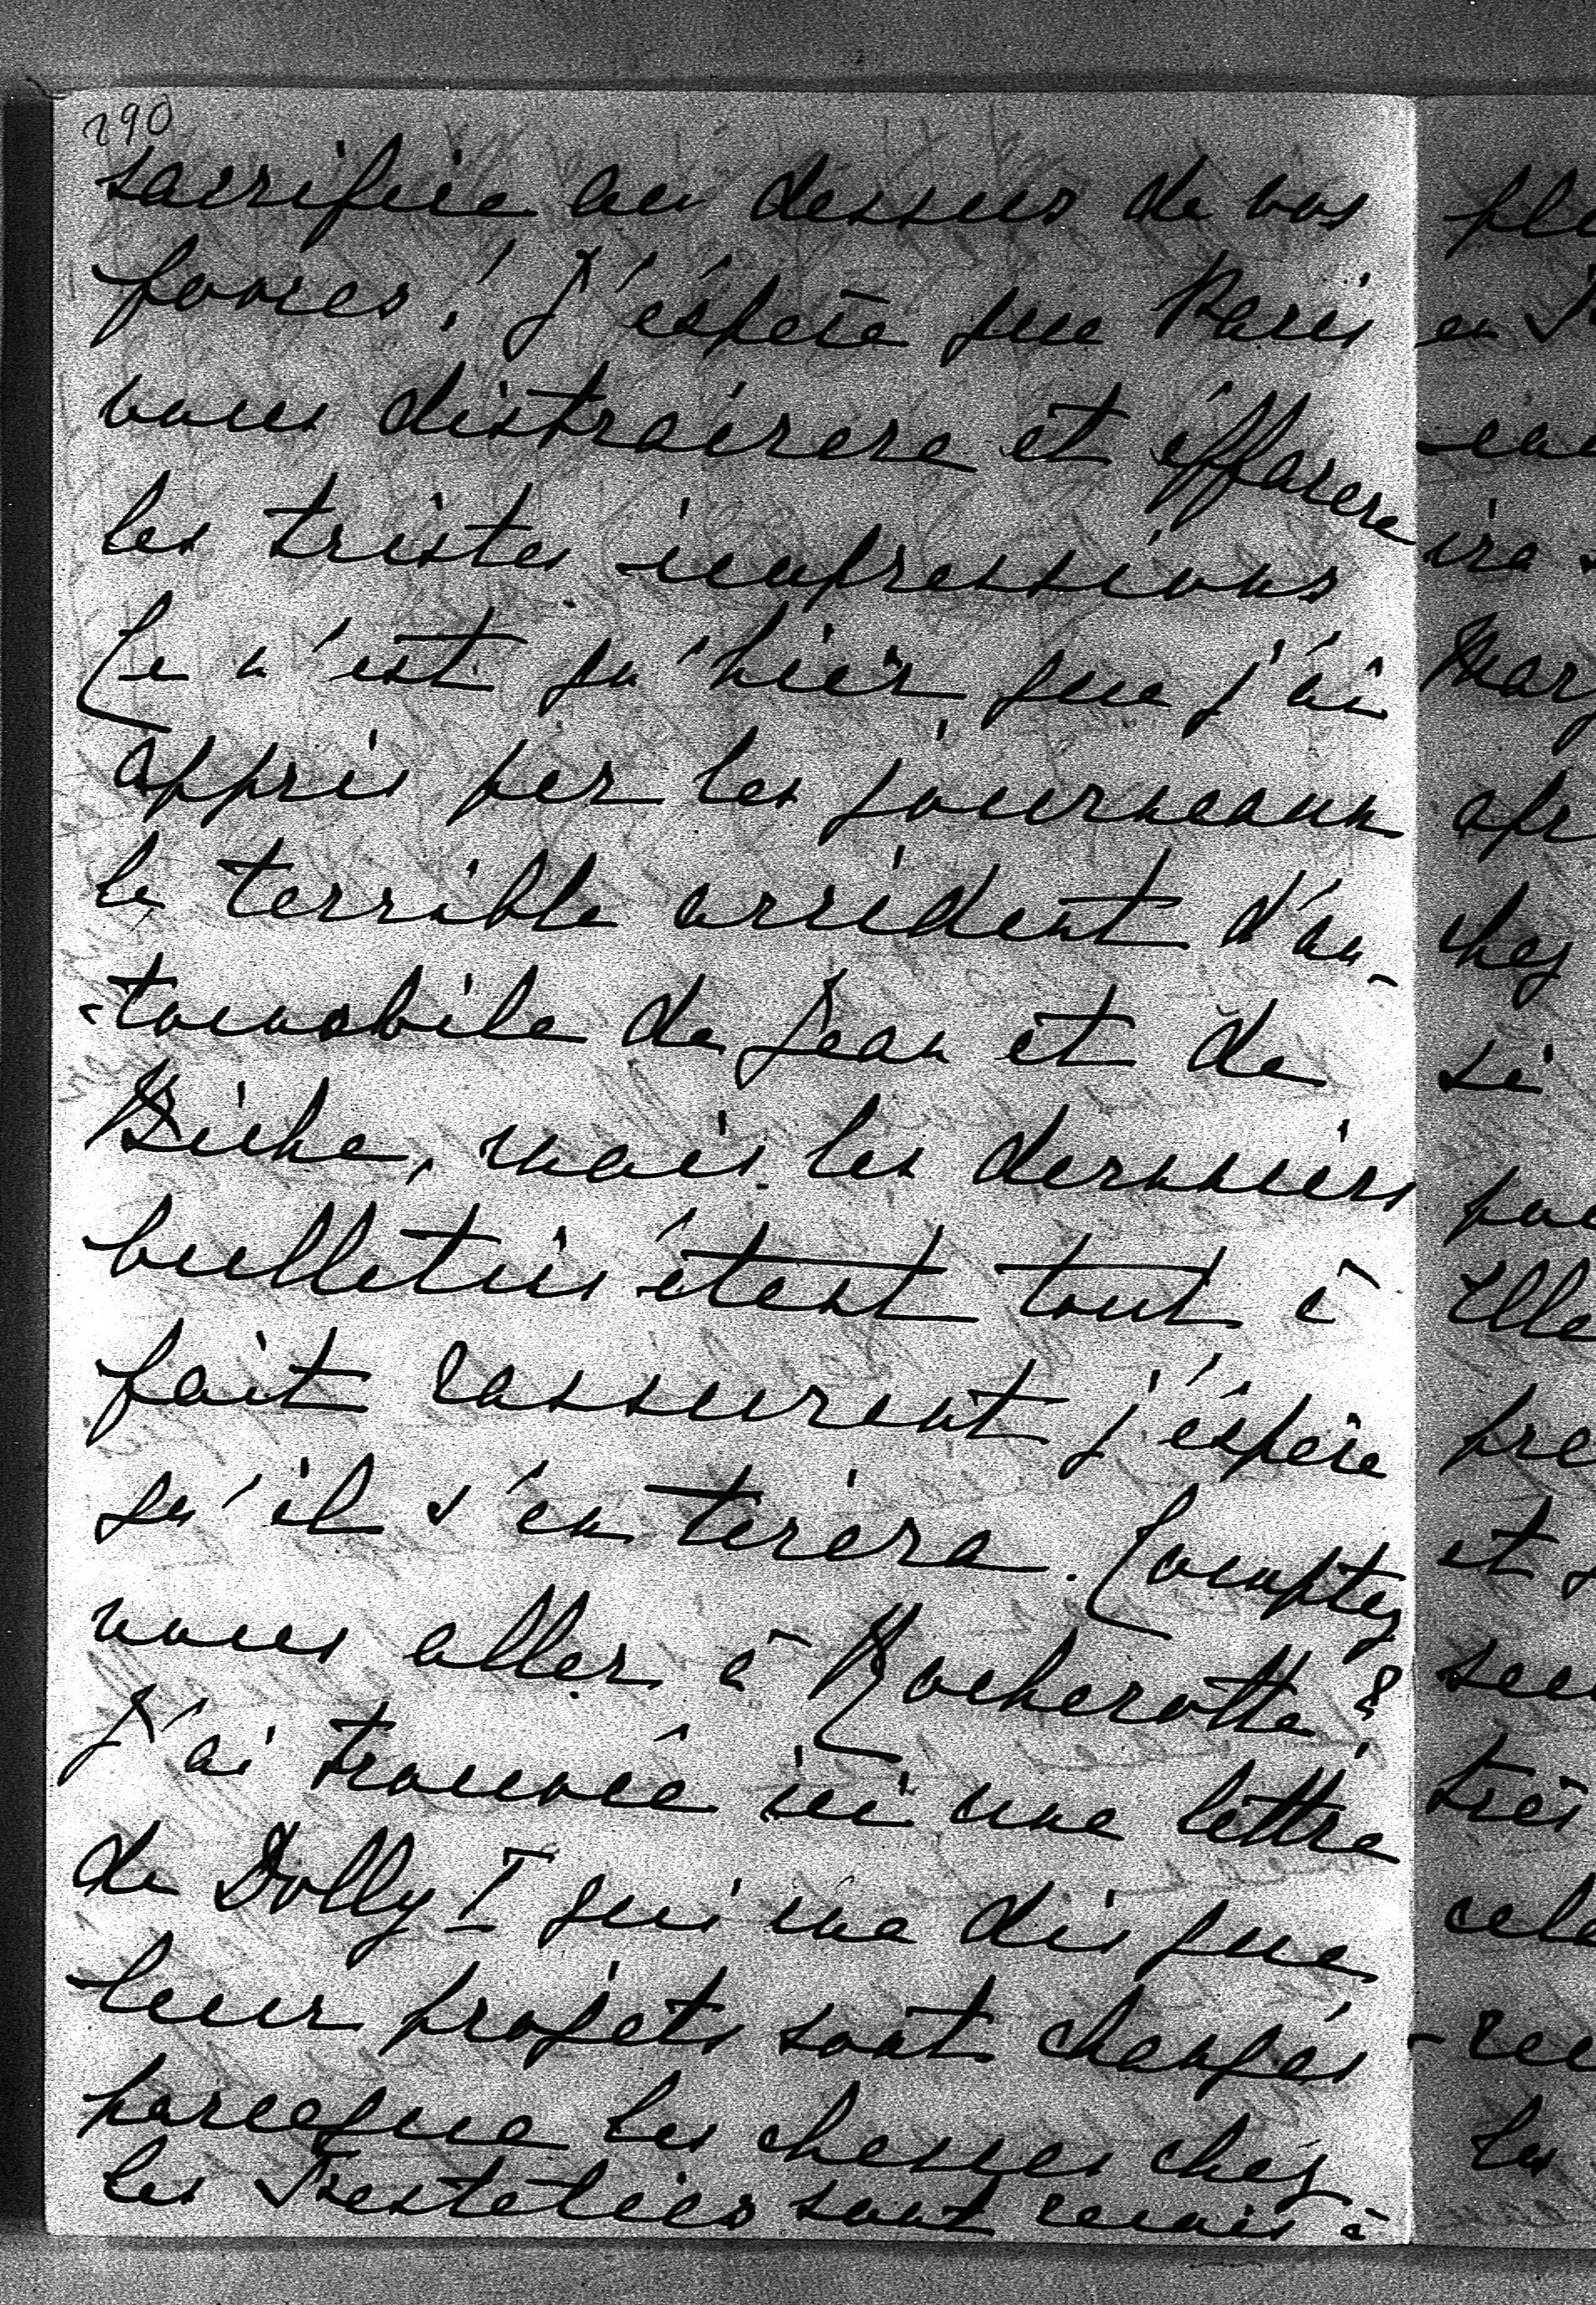 290
sacrifiée au dessus de vos
forces! J'éspère que Paris
vous distrairera et éffacera
les tristes impressions
Ce n'est qu'hier que j'ai
appris par les journeaux
le terrible accident d'au-
-tomobile de Jean et de
Biche, mais les derniers
bulletins étant tout à
fait rassurant j'éspère
qu'il s'en tirera. Comptez
vous aller à Rocherotte?
J'ai trouvé ici une lettre
de Dolly T qui me dis que
leur projets sont changés
parceque les chasses chez
les sont remis à